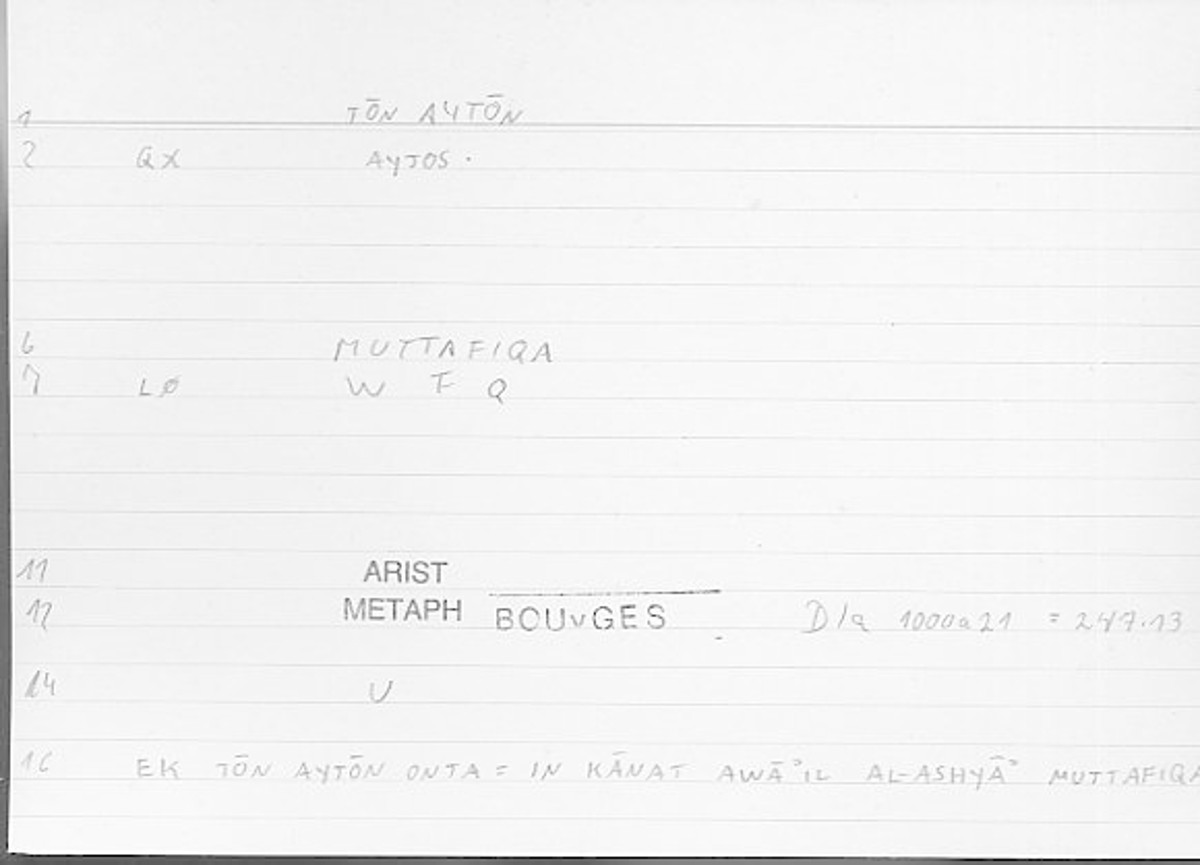 1 TŌN AYTŌN
2 QX AYTOS.
6 MUTTAFIQA
7 LØ W F Q
11 ARIST
12 METAPH BOUYGES D/a 1000a21 = 247.13
14 U
16 EK TŌN AYTŌN ONTA = IN KĀNAT AWĀʾIL AL-ASHYĀʾ MUTTAFIQA